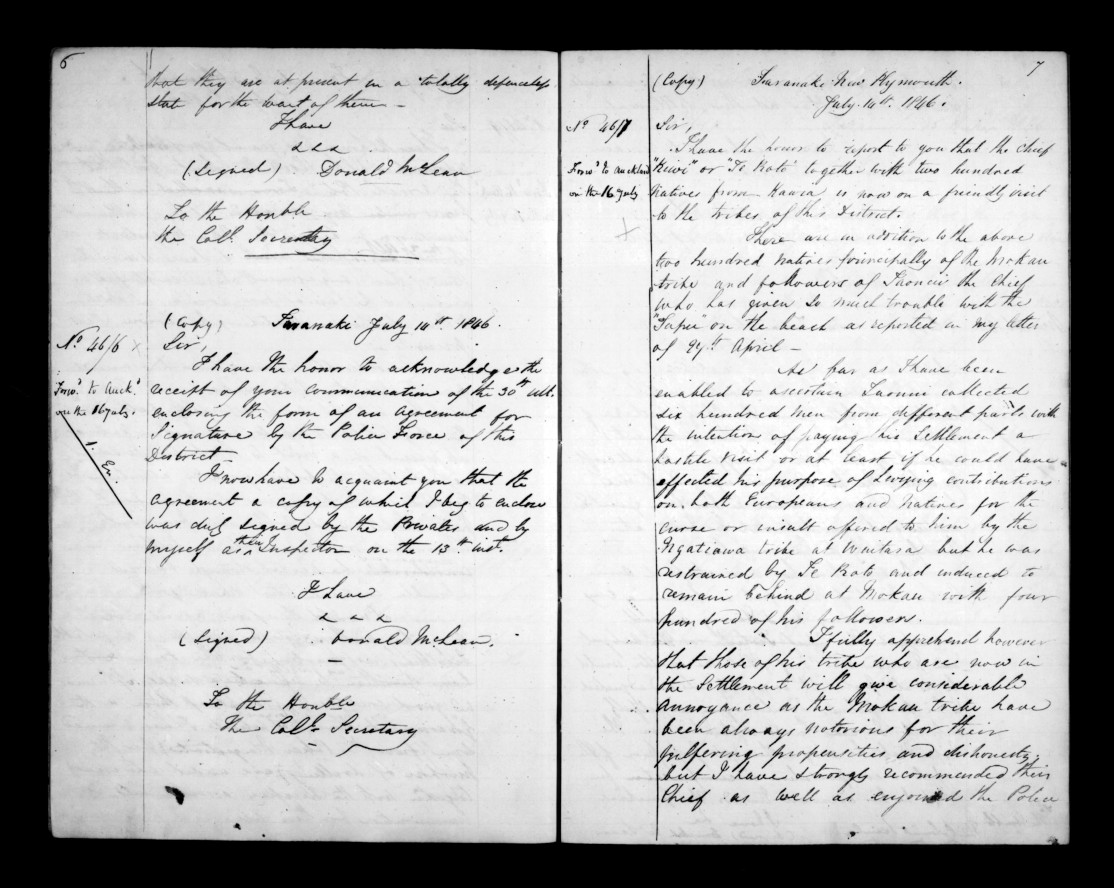 6
that they are at present in a totally defenceless
stat for the want of them —
I have
&&&
(Signed) Donald McLean
To the Honble
the Coll. Secretary
(Copy) Taranaki July 14th 1846.
No 46/6 x
Sir,
I have the honor to acknowledge the
Forwd to Auckd
on the 16 July.
receipt of your communication of the 30th ult.
enclosing the form of an agreement for
Signature by the Police Force of this
District
1 En.
I now have to acquaint you that the
agreement a copy of which I beg to enclose
was duly signed by the Privates and by
myself as their Inspector on the 13th inst.
I have
&&&
(Signed) Donald McLean.
To the Honble
The Coll. Secretary
7
(Copy) Taranaki New Plymouth.
July 14th. 1846.
No 46/7
Sir,
I have the honor to report to you that the chief
Forwd to Auckland
on the 16 July
"Kiwi" or Te Roto together with two hundred
natives from Kawia is now on a friendly visit
to the tribes of this District.
x
There are in addition to the above
two hundred natives principally of the Mokau
tribe and followers of Taonui the Chief
who has given so much trouble with the
"Tapu" on the beach as reported in my letter
of 27th April —
As far as I have been
enabled to ascertain Taonui collected
six hundred men from different parts with
the intention of paying his Settlement a
hostile visit or at least if he could have
effected his purpose of Levying contributions
on both Europeans and Natives for the
curse or insult offered to him by the
Ngatiawa tribe at Waitara but he was
restrained by Te Roto and induced to
remain behind at Mokau with four
hundred of his followers.
I fully apprehend however
that those of his tribe who are now in
the Settlement will give considerable
annoyance as the Mokau tribe have
been always notorious for their
pilfering propensities and dishonesty,
but I have strongly recommended their
Chief as well as enjoined the Police